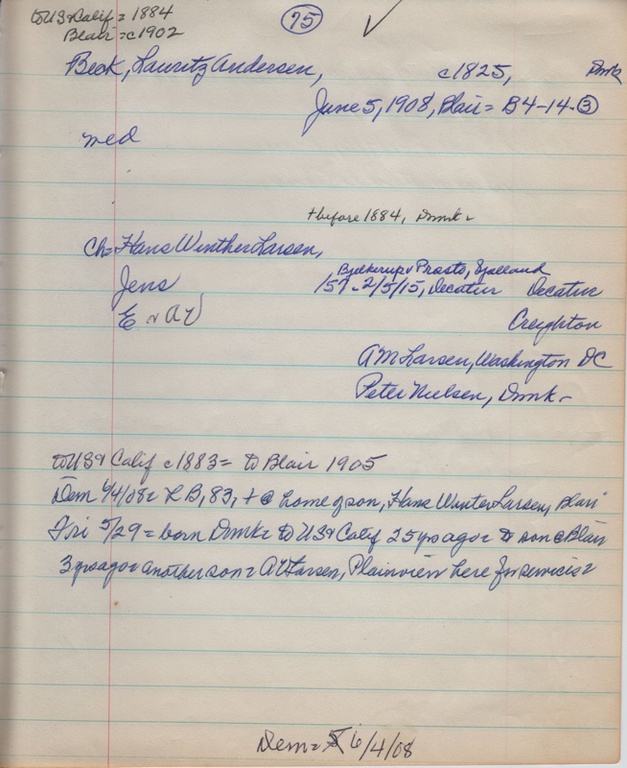 to US & Calif = 1884
Blair = c1902
75
Beck, Lauritz Andersen, c1825, Dmk
June 5, 1908, Blair = B4-14-3
med
+ before 1884, Dmk -
Ch = Hans Winther Larsen,
Bjelkerup v Prasto, Sjalland
Jens 157 - 2/5/15, Decatur Decatur
E - AV Creighton
A M Larsen, Washington DC
Peter Nielsen, Dmk -
to US & Calif c1883 = to Blair 1905
Dem 6/4/08 = L B, 83, + @ home of son, Hans Winter Larsen, Blair
Fri 5/29 = born Dmk = to US & Calif 25 yrs ago = to son @ Blair
3 yrs ago = another son = AV Larsen, Plainview here for services =
Dem = 6/4/08